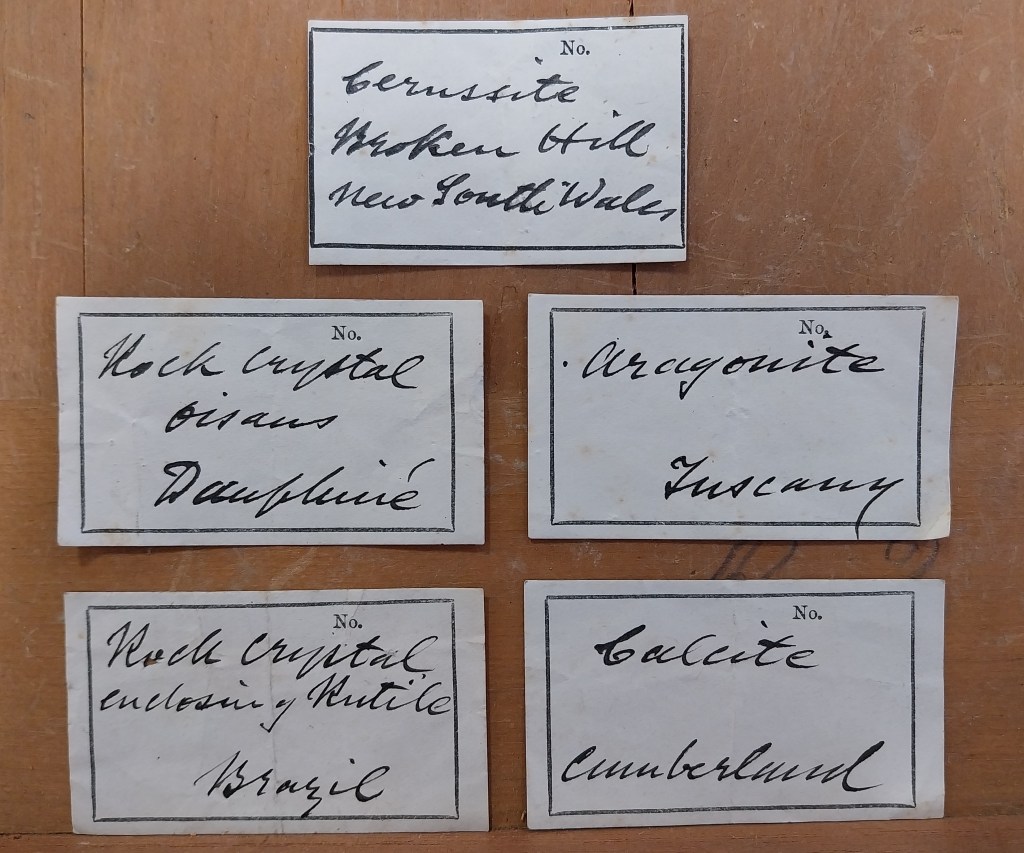 No.
Cerussite
Broken Hill
New South Wales
No.
Rock Crystal
Oisans
Dauphiné
No.
Aragonite
Tuscany
No.
Rock Crystal
enclosing Rutile
Brazil
No.
Calcite
Cumberland